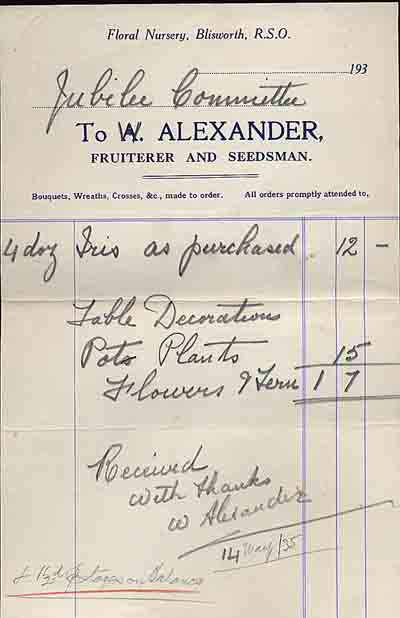 Floral Nursery, Blisworth, R.S.O.
193
Jubilee Committee
To W. ALEXANDER,
FRUITERER AND SEEDSMAN.
Bouquets, Wreaths, Crosses, &c., made to order. All orders promptly attended to.
4 doz Iris as purchased 12 -
Table Decorations
Pots Plants 15
Flowers & Fern 1 7
Received
With Thanks
W Alexander
14 May/35
1½d Balance